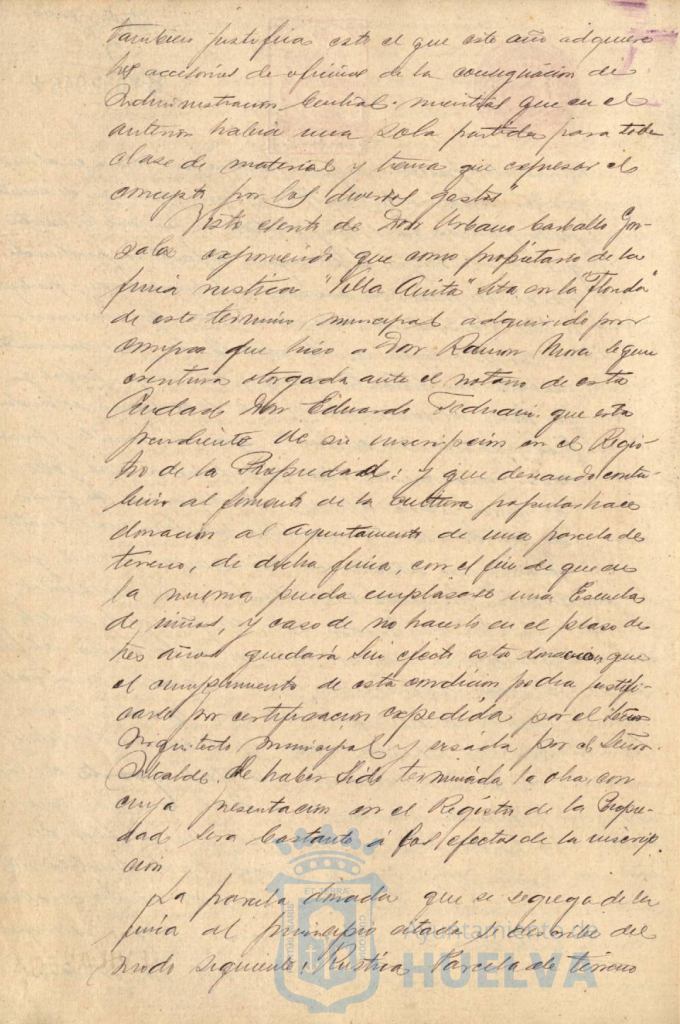 tambien justifica esto el que este año adquiere
los accesorios de oficinas de la consignacion de
Administracion Central. mientras que en el
anterior habia una sola partida para toda
clase de material y tenia que expresar el
concepto por los diversos gastos"
Visto escrito de Don Urbano Carballo Gon-
zalez exponiendo que como propietario de la
finca rustica "Villa Anita" sita en la "Florida"
de este termino municipal adquirida por
compra que hizo a Don Ramon Mora segun
escritura otorgada ante el notario de esta
Ciudad Don Eduardo Fedriani que esta
pendiente de su inscripcion en el Regis-
tro de la Propiedad: y que deseando contri-
buir al fomento de la cultura popular hace
donacion al Ayuntamiento de una parcela de
terreno, de dicha finca, con el fin de que en
la misma pueda emplazarse una Escuela
de niños, y caso de no hacerlo en el plazo de
tres años quedará sin efecto esta donacion, que
el cumplimiento de esta condicion podra justifi-
carse por certificacion expedida por el Señor
Arquitecto Municipal y visada por el Señor
Alcalde. De haber sido terminada la obra, con
cuya presentacion en el Registro de la Propie-
dad sera bastante á los efectos de la inscrip-
cion
La parcela donada que se segrega de la
finca al principio citada se describe del
modo siguiente: Rustica Parcela de terreno
Ayuntamiento de
HUELVA